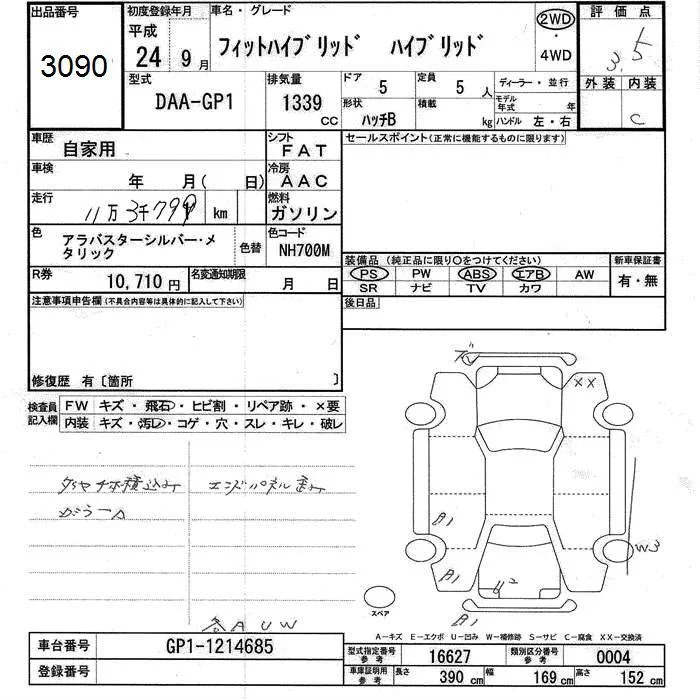 出品番号 初度登録年月 車名・グレード 2WD 評価点
平成 フィットハイブリッド ハイブリッド ・ 3.5
3090 24 9月 4WD
型式 排気量 ドア 定員 ディーラー・並行 外装 内装
DAA-GP1 1339 cc 5 5人 モデル年式 年
形状 積載
ハッチB kg ハンドル 左・右 C
車歴 自家用 シフト FAT セールスポイント(正常に機能するものに限ります)
車検 年 月( 日) 冷房 AAC
走行 11万3千799 km 燃料 ガソリン
色 アラバスターシルバー・メタリック 色替 色コード NH700M
装備品(純正品に限り○をつけてください) 新車保証書
R券 10,710円 名変通知期限 月 日 PS PW ABS エアB AW 有・無
SR ナビ TV カワ
注意事項申告欄(不具合内容等は具体的に記入して下さい) 後日品
修復歴 有〔箇所 〕
検査員記入欄 FW キズ・飛石・ヒビ割・リペア跡・×要
内装 キズ・汚レ・コゲ・穴・スレ・キレ・破レ
XX
エンドパネル歪み
A1
W3
A1
U2
スペア A1
各AUW
A-キズ E-エクボ U-凹み W-補修跡 S-サビ C-腐食 XX-交換済
車台番号 GP1-1214685 型式指定番号参考 16627 類別区分番号参考 0004
登録番号 車庫証明用参考 長さ 390 cm 幅 169 cm 高さ 152 cm